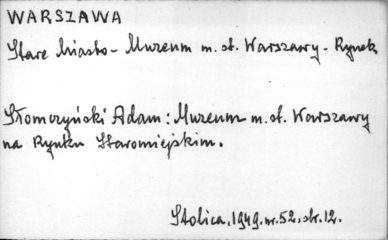 WARSZAWA
Stare Miasto - Muzeum m. st. Warszawy - Rynek
Słomczyński Adam: Muzeum m. st. Warszawy
na Rynku Staromiejskim.
Stolica, 1949. nr. 52, str. 12.